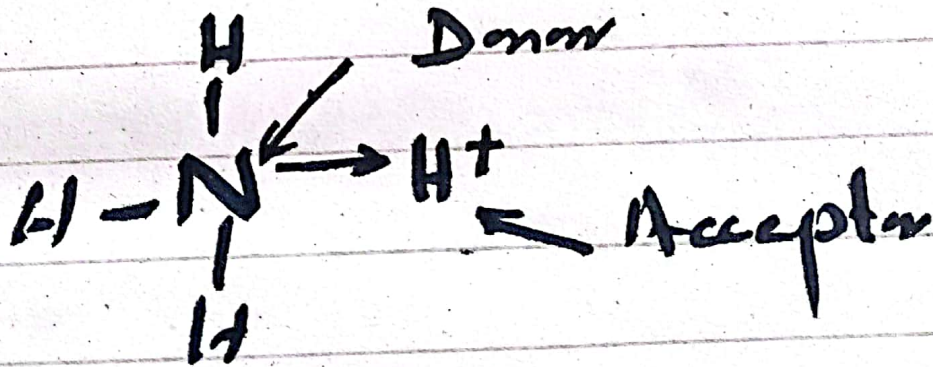 H Donor
H - N → H+
Acceptor
H